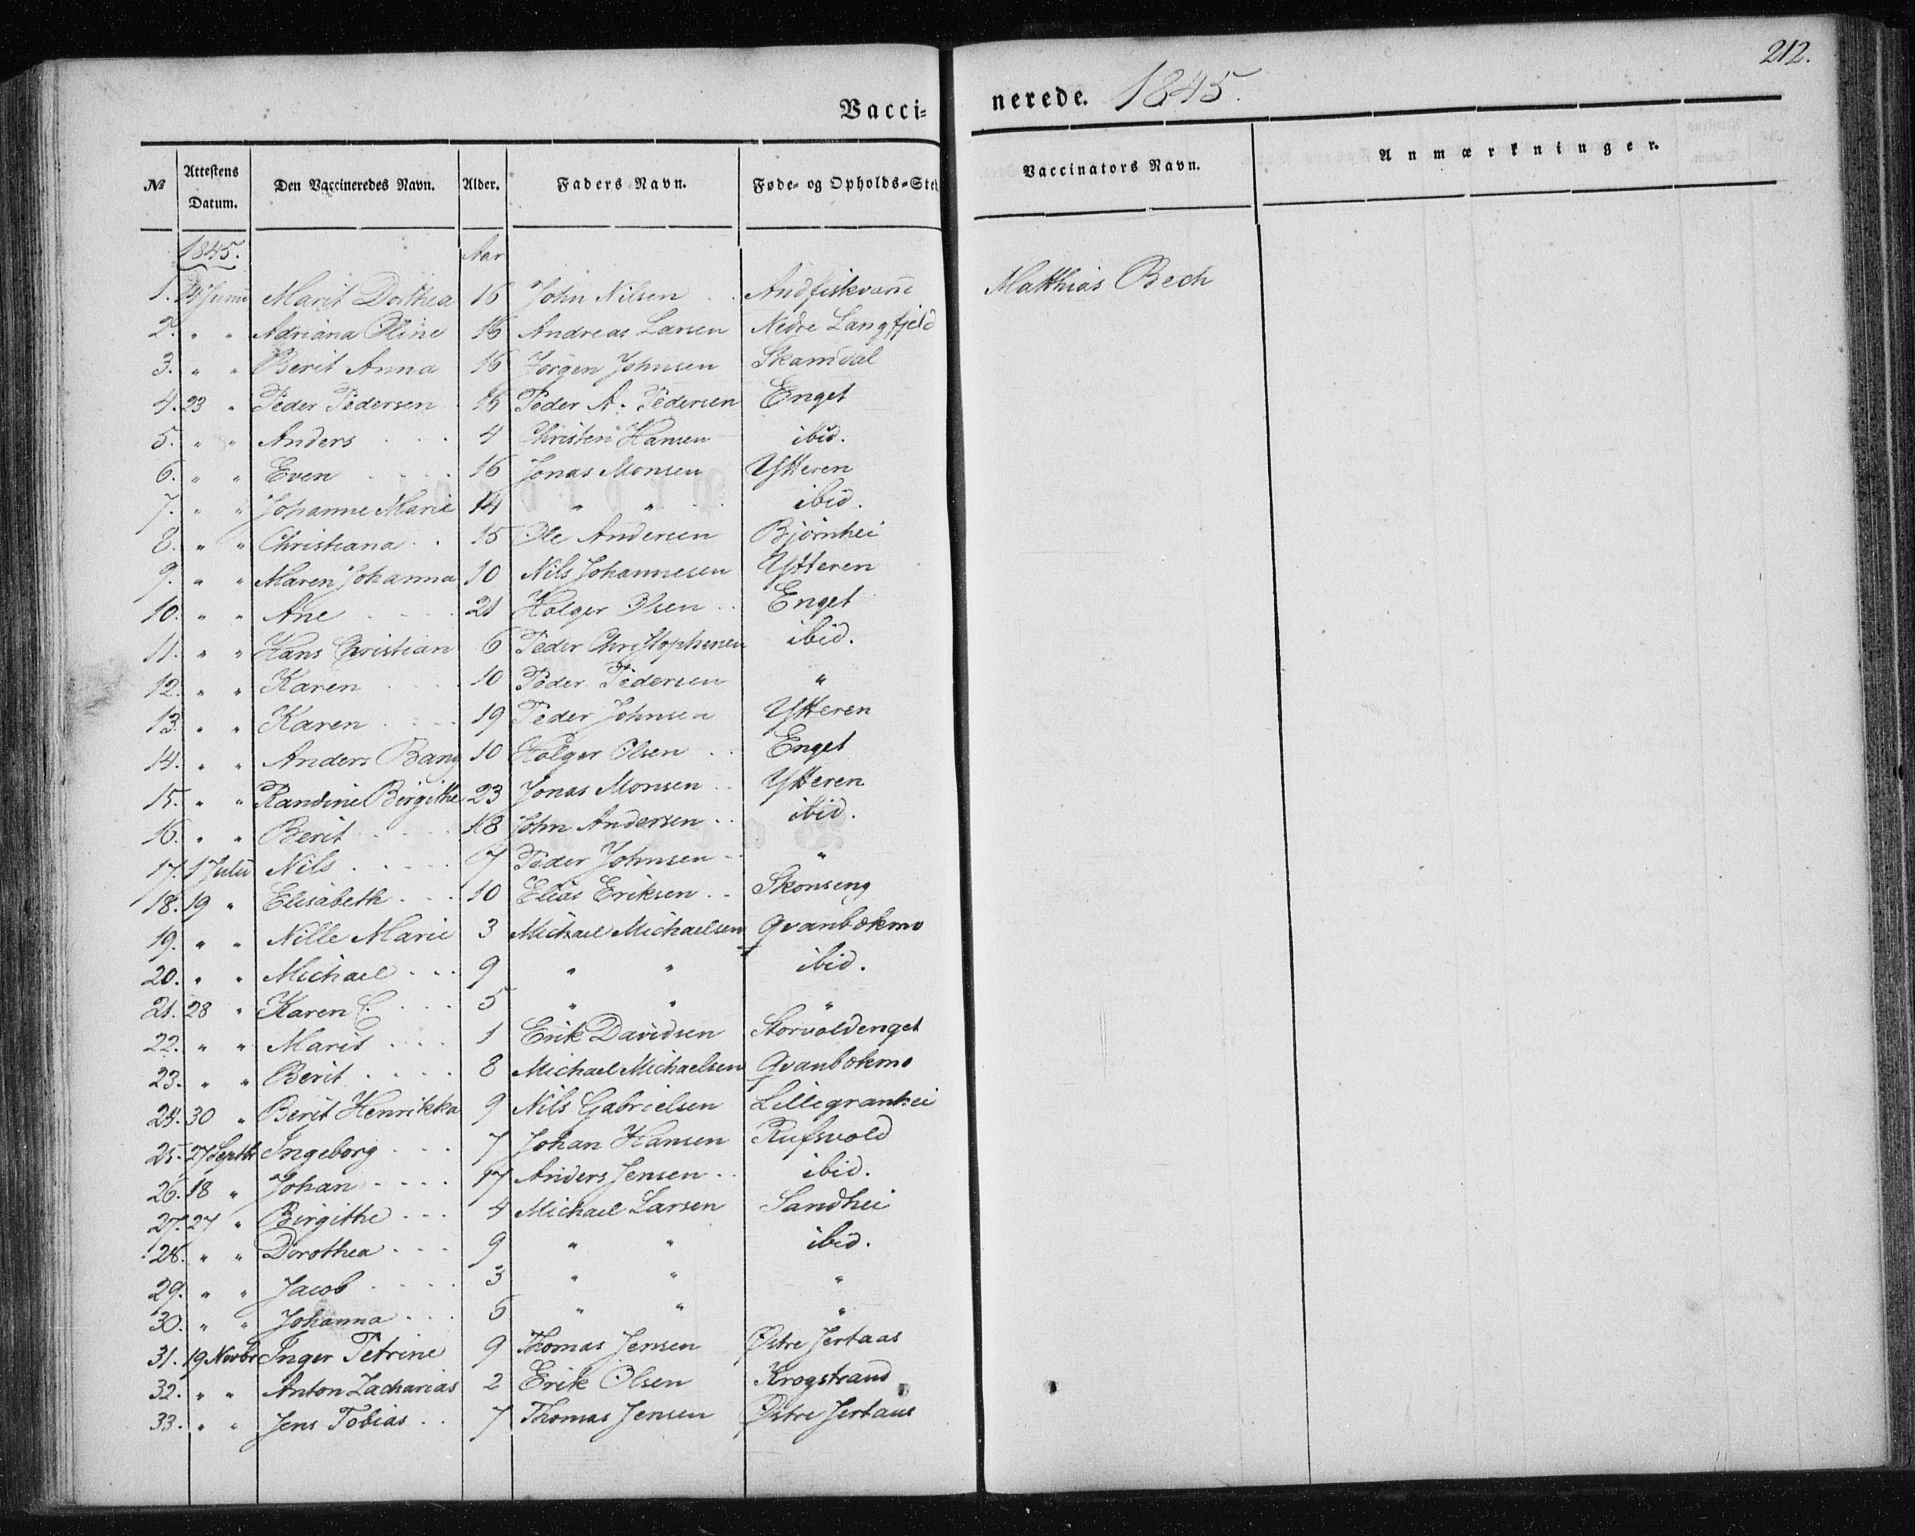 212.
Vacci- nerede. 1845.
No Attestens Datum. Den Vaccineredes Navn. Alder. Faders Navn. Føde- og Opholds-Sted Vaccinators Navn. Anmærkninger.
1845. Aar
1. Junii Marit Dorthea 16 John Nilsen Andfiskvand Matthias Bech
2. " " Adriana Oline 16 Andreas Larsen Nedre Langfjeld
3. " " Berit Anna 16 Jørgen Johnsen Skamdal
4. 23 " Peder Pedersen 16 Peder A. Pedersen Enget
5. " " Anders 4 Christen Hansen ibid.
6. " " Even 16 Jonas Monsen Ytteren
7. " " Johanne Marie 14 " " ibid.
8. " " Christiana 15 Ole Andersen Bjørnhei
9. " " Maren Johanna 10 Nils Johannesen Ytteren
10. " " Ane 21 Holger Olsen Enget
11. " " Hans Christian 6 Peder Christophersen ibid.
12. " " Karen 10 Peder Pedersen "
13. " " Karen 19 Peder Johnsen Ytteren
14. " " Anders Bang 10 Holger Olsen Enget
15. " " Randine Birgithe 23 Jonas Monsen Ytteren
16. " " Berit 18 John Andersen ibid.
17. 1 Julii Nils 7 Peder Johnsen "
18. 19 " Elisabeth 10 Elias Eriksen Skonseng
19. " " Nille Marie 3 Michael Michaelsen Qvanbækmo
20. " " Michael 9 " " ibid.
21. 28 " Karen C. 5 " " "
22. " " Marit 1 Erik Davidsen Storvoldenget
23. " " Berit 8 Michael Michaelsen Qvanbækmo
24. 30 " Berit Henrikka 9 Nils Gabrielsen Lillegranhei
25. 27 Septbr Ingeborg 7 Johan Hansen Rufsvold
26. 18 " Johan 17 Anders Jensen ibid.
27. 27 " Birgithe 4 Michael Larsen Sandhei
28. " " Dorothea 9 " " ibid.
29. " " Jacob 3 " " "
30. " " Johanna 5 " " "
31. 19 Novbr Inger Petrine 9 Thomas Jensen Østre Jertaas
32. " " Anton Zacharias 2 Erik Olsen Krogstrand
33. " " Jens Tobias 7 Thomas Jensen Østre Jertaas